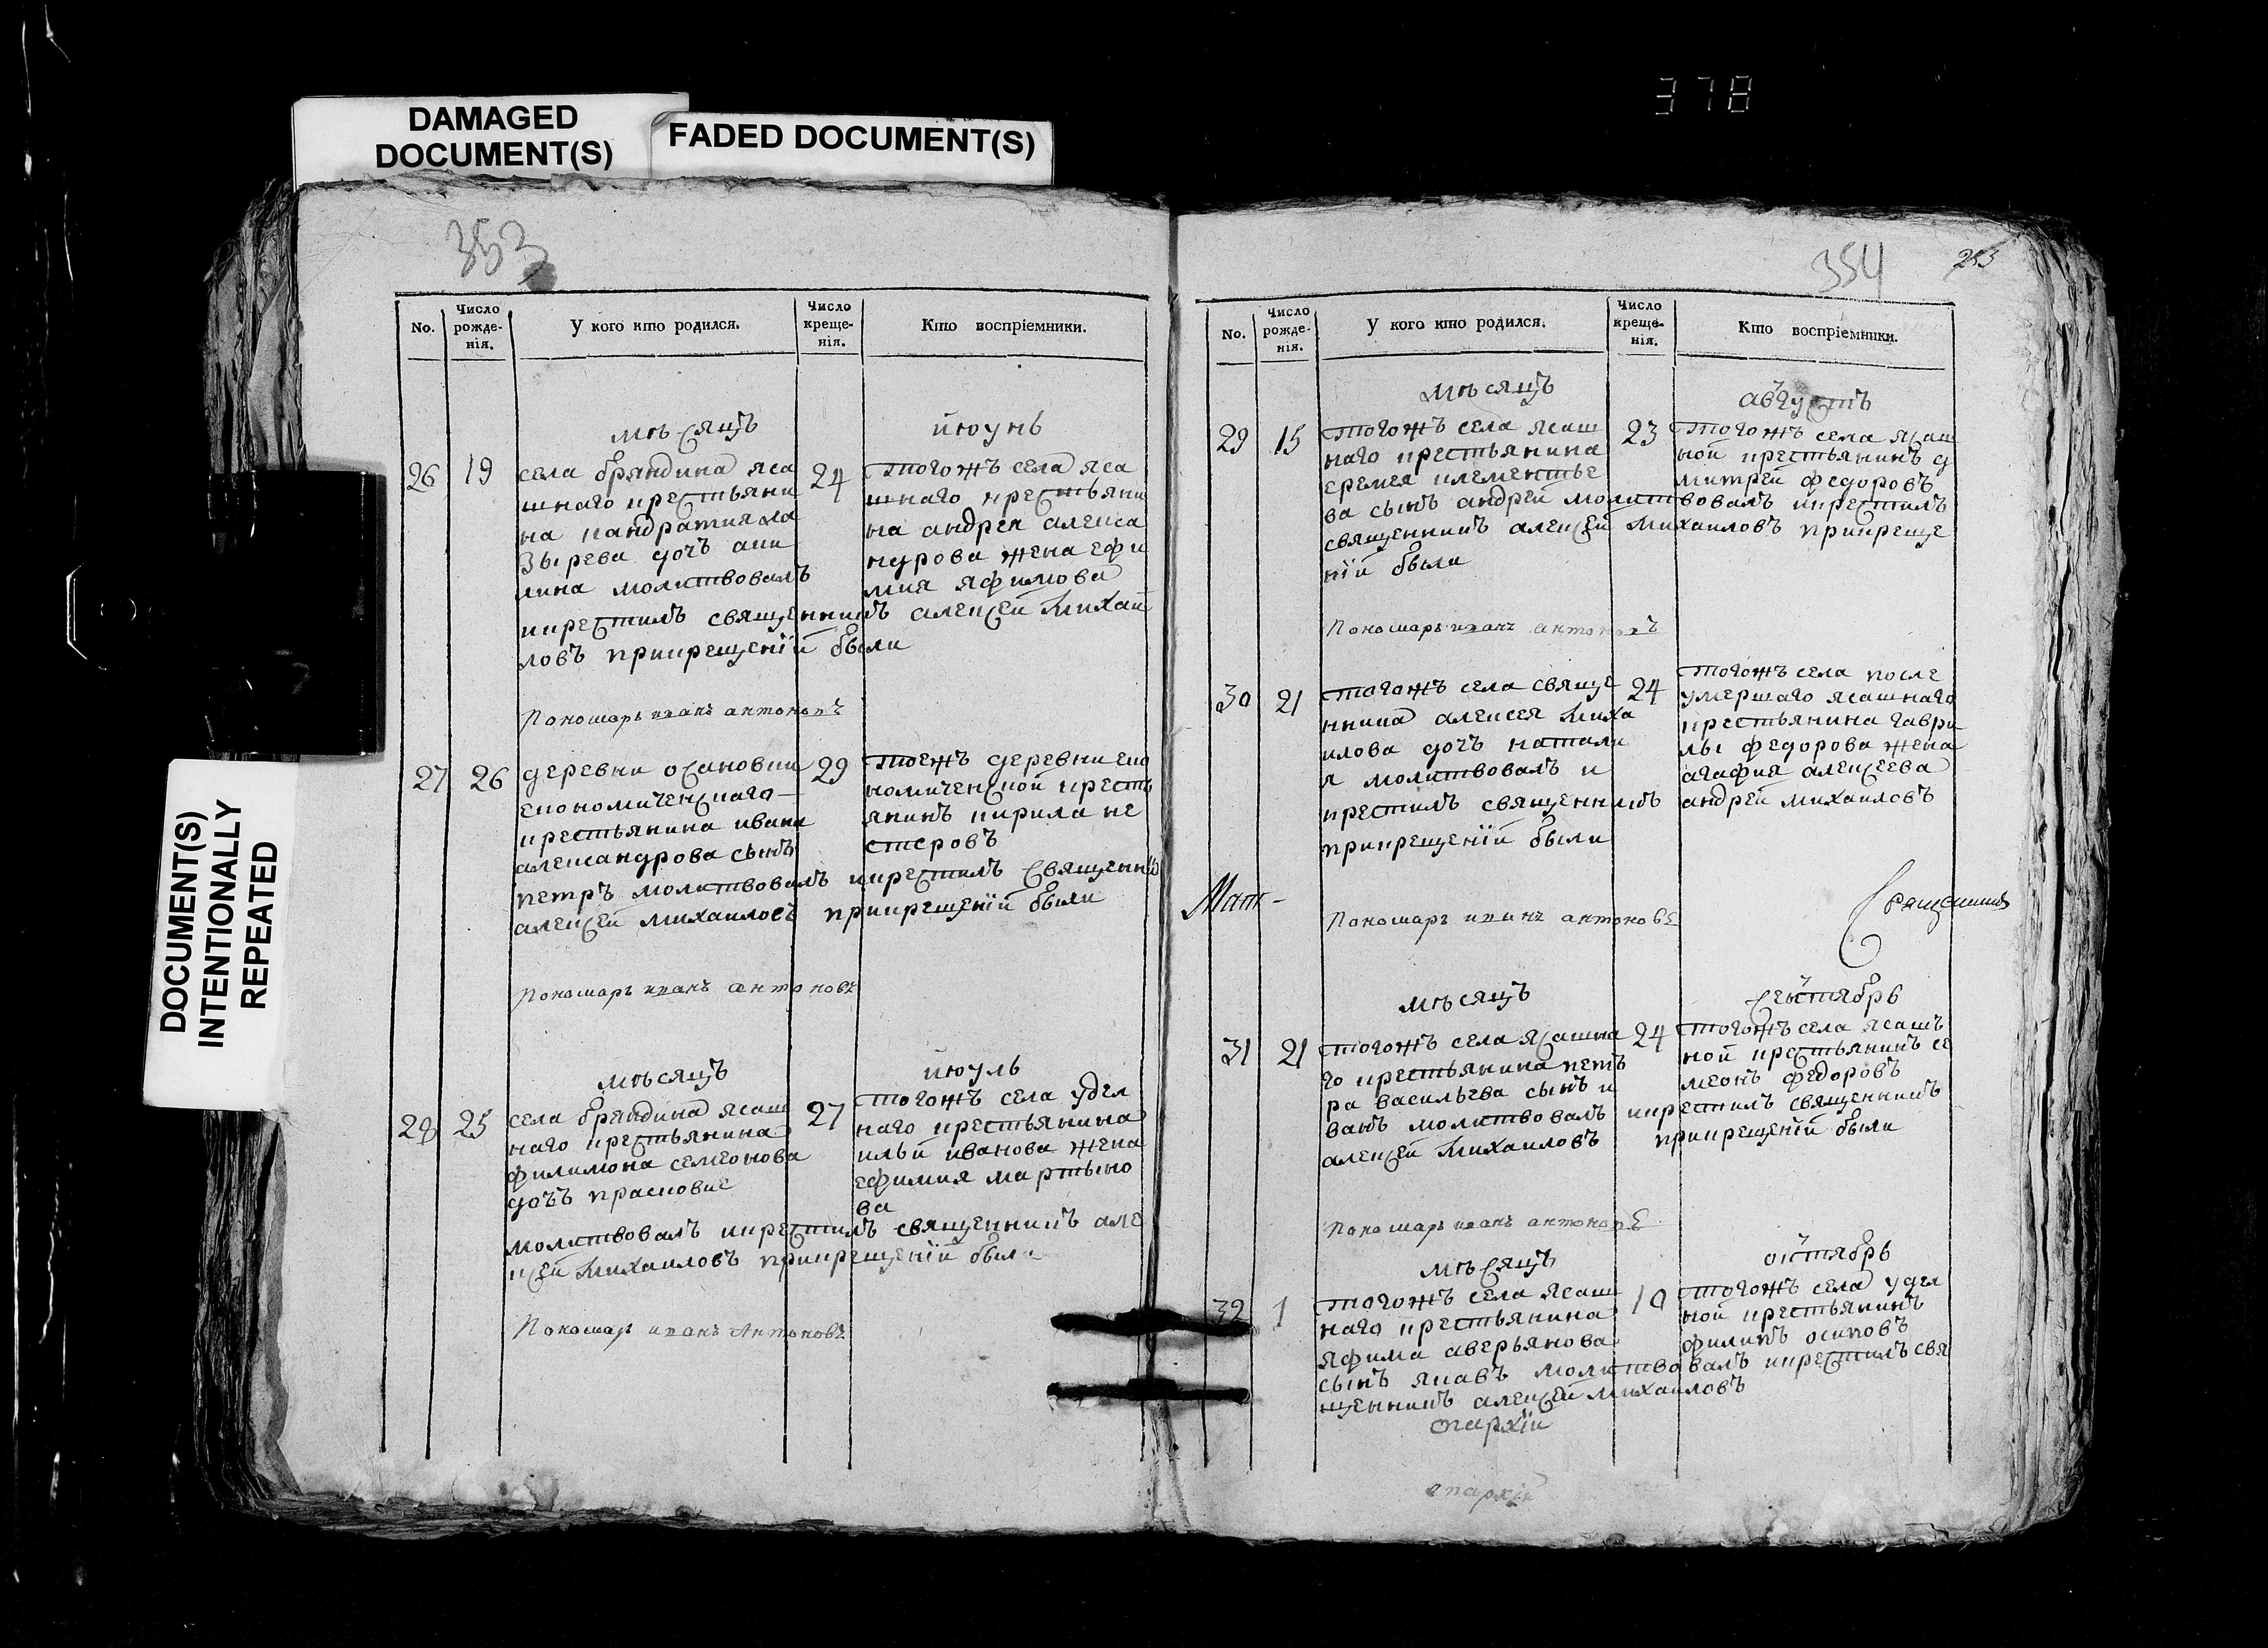 378
DAMAGED
DOCUMENT(S)
FADED DOCUMENT(S)
DOCUMENT(S)
INTENTIONALLY
REPEATED
353
No.
Число
рожде-
нія.
У кого кто родился.
Число
креще-
нія.
Кто воспріемники.
мѣсяцъ
июунь
26
19
села бряндина яса
шнаго крестьяни
на кандратия ла
зырева дочъ аки
лина молитвовалъ
икрестилъ священникъ алексей михаи
ловъ прикрещений были
24
тогожъ села яса
шнаго крестьяни
на андрея алекса
ндрова жена ефи
мия яфимова
Пономарь иванъ антоновъ
27
26
деревни осановки
економическаго
крестьянина ивана
александрова сынъ
петръ молитвовалъ икрестилъ священикъ
алексей михаиловъ прикрещений были
29
тоежъ деревни еко
номической кресть
янинъ кирила не
стеровъ
Пономарь иванъ антоновъ
мѣсяцъ
июуль
28
25
села бряндина ясаш
наго крестьянина
филимона семеонова
дочъ прасковие
молитвовалъ икрестилъ священникъ але
ксей михаиловъ прикрещений были
27
тогожъ села удел
наго крестьянина
ильи иванова жена
ефимия мартыно
ва
Пономарь иванъ Антоновъ
354
253
No.
Число
рожде-
нія.
У кого кто родился.
Число
креще-
нія.
Кто воспріемники.
мѣсяцъ
августъ
29
15
тогожъ села ясаш
наго крестьянина
еремея клементье
ва сынъ андрей молитвовалъ икрестилъ
священникъ алексей михаиловъ прикреще
ний были
23
тогожъ села ясаш
ной крестьянинъ д
митрей федоровъ
Пономарь иванъ антоновъ
30
21
тогожъ села свяще
нника алексея миха
илова дочъ натали
я молитвовалъ и
крестилъ священникъ
прикрещений были
24
тогожъ села после
умершаго ясашнаго
крестьянина гаври
лы федорова жена
агафия алексеева
андрей михаиловъ
Пономарь иванъ антоновъ
Священникъ
мѣсяцъ
сентябрь
31
21
тогожъ села ясашна
го крестьянина пет
ра васильева сынъ и
ванъ молитвовалъ икрестилъ священникъ
алексей михаиловъ прикрещений были
24
тогожъ села ясашъ
ной крестьянинъ се
меонъ федоровъ
Пономарь иванъ антоновъ
мѣсяцъ
октябрь
32
1
тогожъ села ясаш
наго крестьянина
яфима аверьянова
сынъ яковъ молитвовалъ икрестилъ свя
щенникъ алексей михаиловъ
10
тогожъ села удел
ной крестьянинъ
филипъ осиповъ
епархии